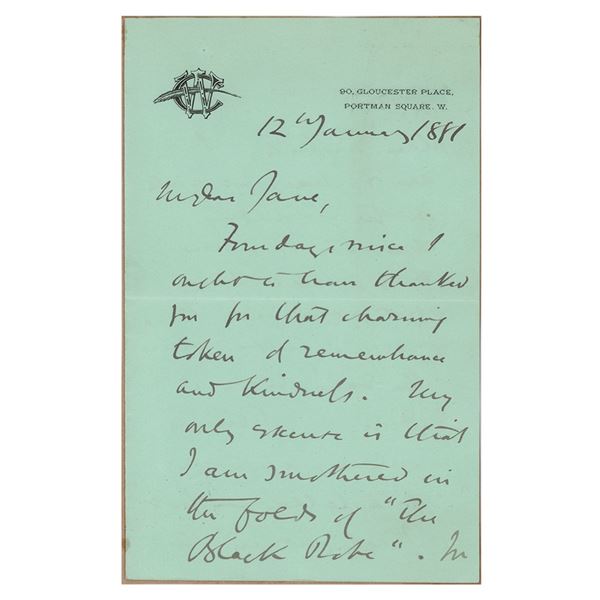 90, GLOUCESTER PLACE,
PORTMAN SQUARE. W.
12th January 1881
My dear Jane,
Four days since I
ought to have thanked
you for that charming
token of remembrance
and kindness. My
only excuse is that
I am smothered in
the folds of "The
Black Robe". In